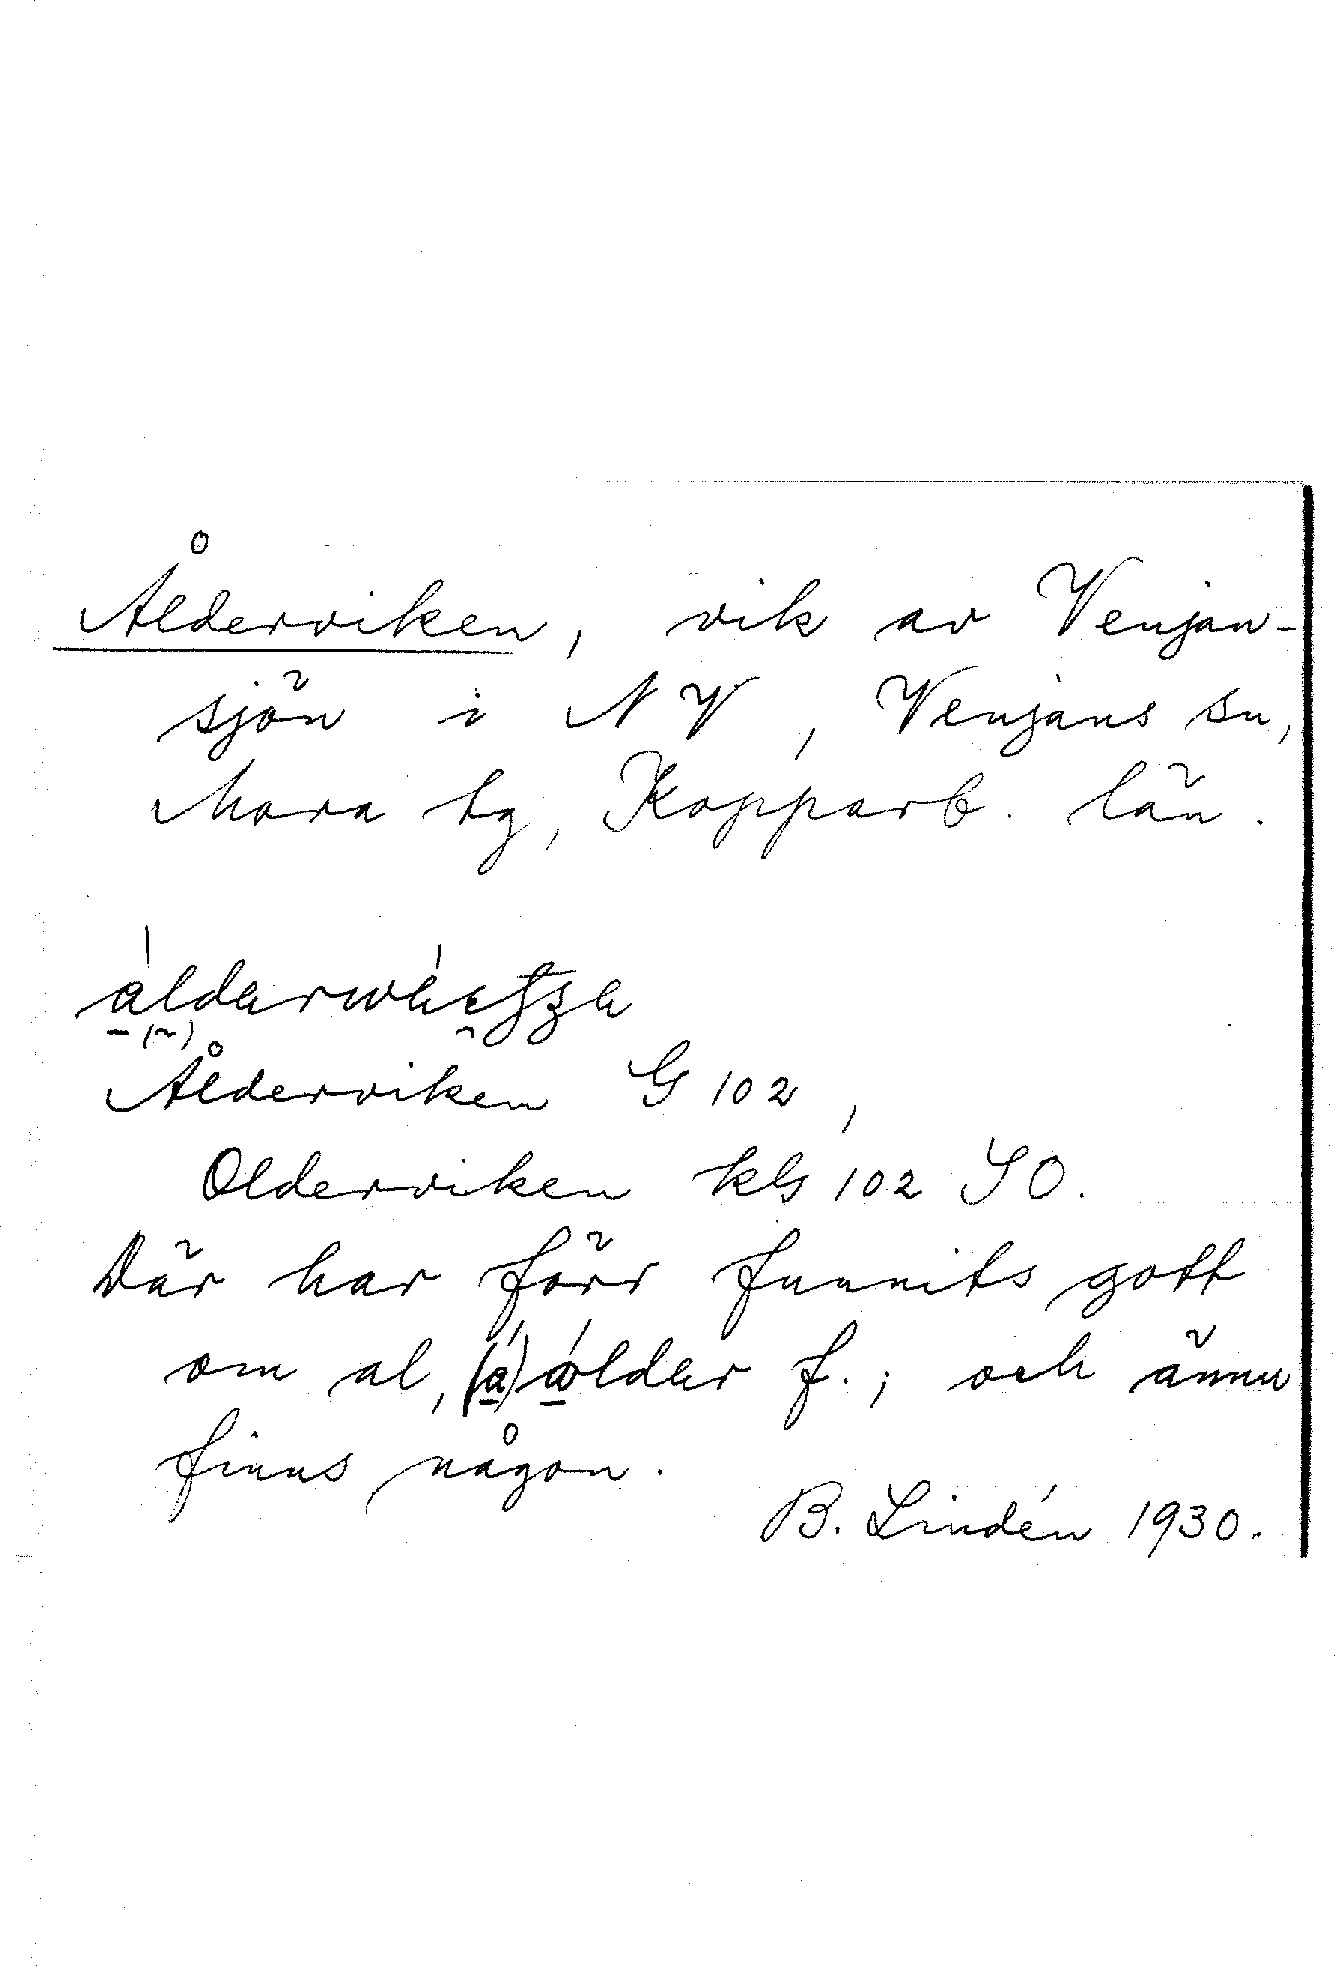 Ålderviken, vik av Venjan-
sjön i NV, Venjans sn,
Mora tg, Kopparb. län.
Ålderviken G 102,
Olderviken kls 102 SO.
Där har förr funnits gott
om al, (a) ålder f.; och ännu
finns någon.
B. Lindén 1930.